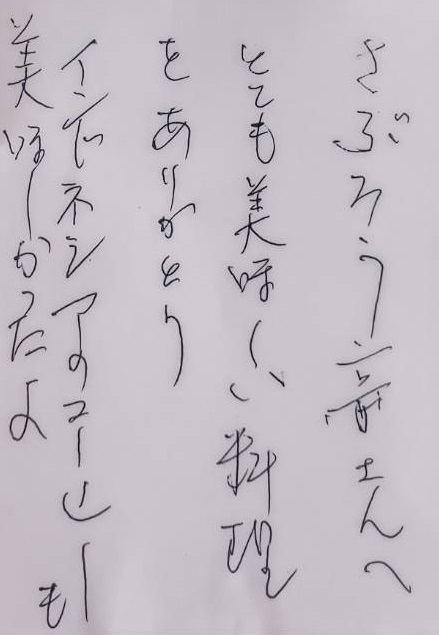 さぶろう斎さんへ
とても美味しい料理
をありがとう
インドネシアのコーヒーも
美味しかったよ